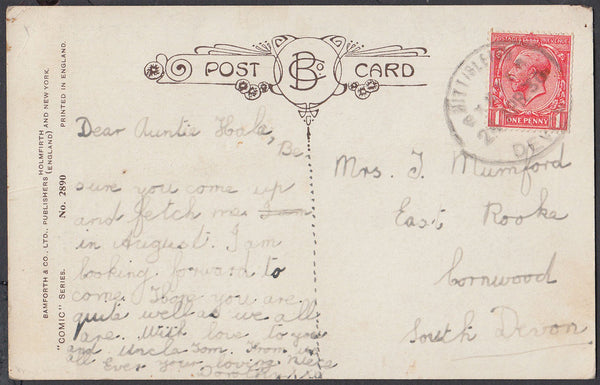 POST CARD
BCo
BAMFORTH & CO., LTD., PUBLISHERS HOLMFIRTH (ENGLAND) AND NEW YORK.
"COMIC" SERIES. No. 2890 PRINTED IN ENGLAND.
POSTAGE REVENUE
ONE PENNY
1 1
Dear Auntie
Be
sure you come up
and fetch me I am
in August. I am
looking forward to
come. Hope you are
quite well as we all
are. With love to you
and Uncle Tom. From us
all Ever your loving niece
Mrs. J. Mumford
East Rooke
Cornwood
South Devon